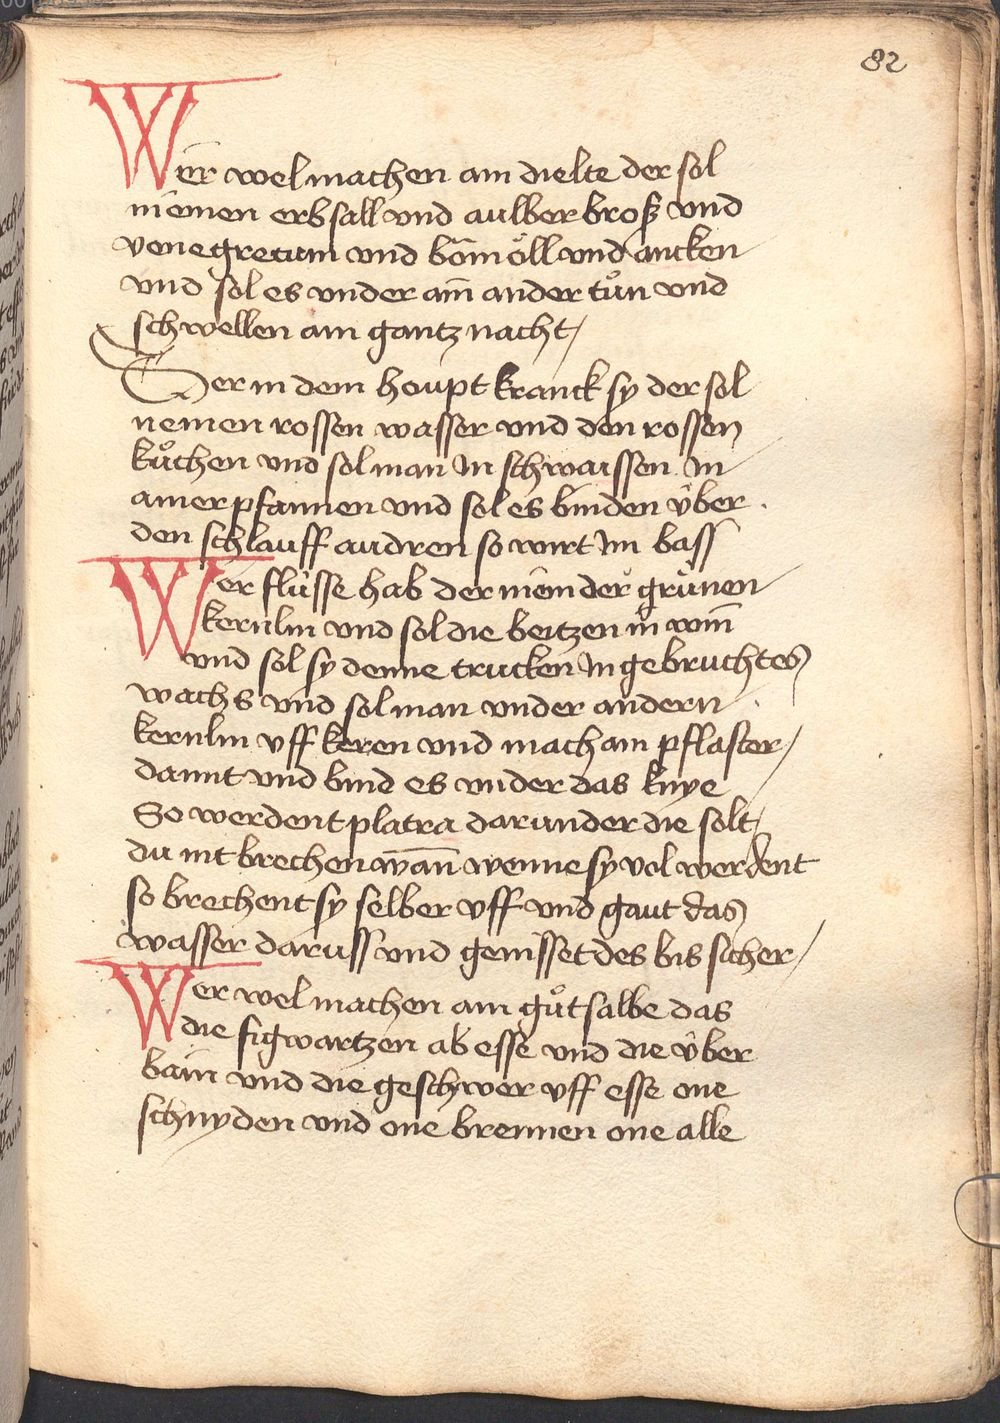 82
Wer wel machen ain dielte der sol
niemen erbsall und aulber brosz und
venegretum und bömöll und ancken
und sol es under ain ander tůn und
schwellen ain gantz nacht /
Der in dem houpt kranck sy der sol
nemen rossen wasser und den rossen
kůchen und sol man in schwaissen in
ainer pfannen und sol es binden über
den schlauff audren so wirt im bass
Wer flüsse hab der niem der grünen
kernlin und sol die beitzen in win
und sol sy denne trucken in gebruchtes
wachs und sol man under andern
kernlin uff keren und mach ain pflaster /
damit und bind es under das knye
So werdent platra darunder die solt /
du nit brechen wan wenne sy vol werdent
so brechent sy selber uff und gaut das
wasser daruss und genisset des bis sicher /
Wer wel machen ain gůt salbe das
die figwartzen ab esse und die über
bain und die geschwer uff esse one
schnyden und one brennen one alle